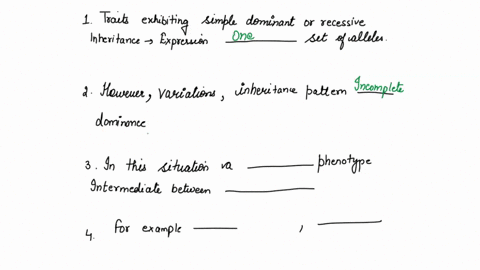 1. Traits exhibiting simple dominant or recessive
Inheritance → Expression One set of alleles.
2. However, variations, inheritance pattern Incomplete
dominance
3. In this situation va ______ phenotype
Intermediate between ______
4. for example ______ , ______